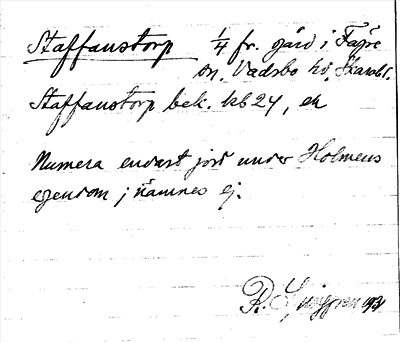 Staffanstorp 1/4 fr. gård i Fägre
sn, Vadsbo hd, Skarabl.
Staffanstorp bek. kb 24, ek
Numera endast jord under Holmens
egendom; nämnes ej.
R. Ljunggren